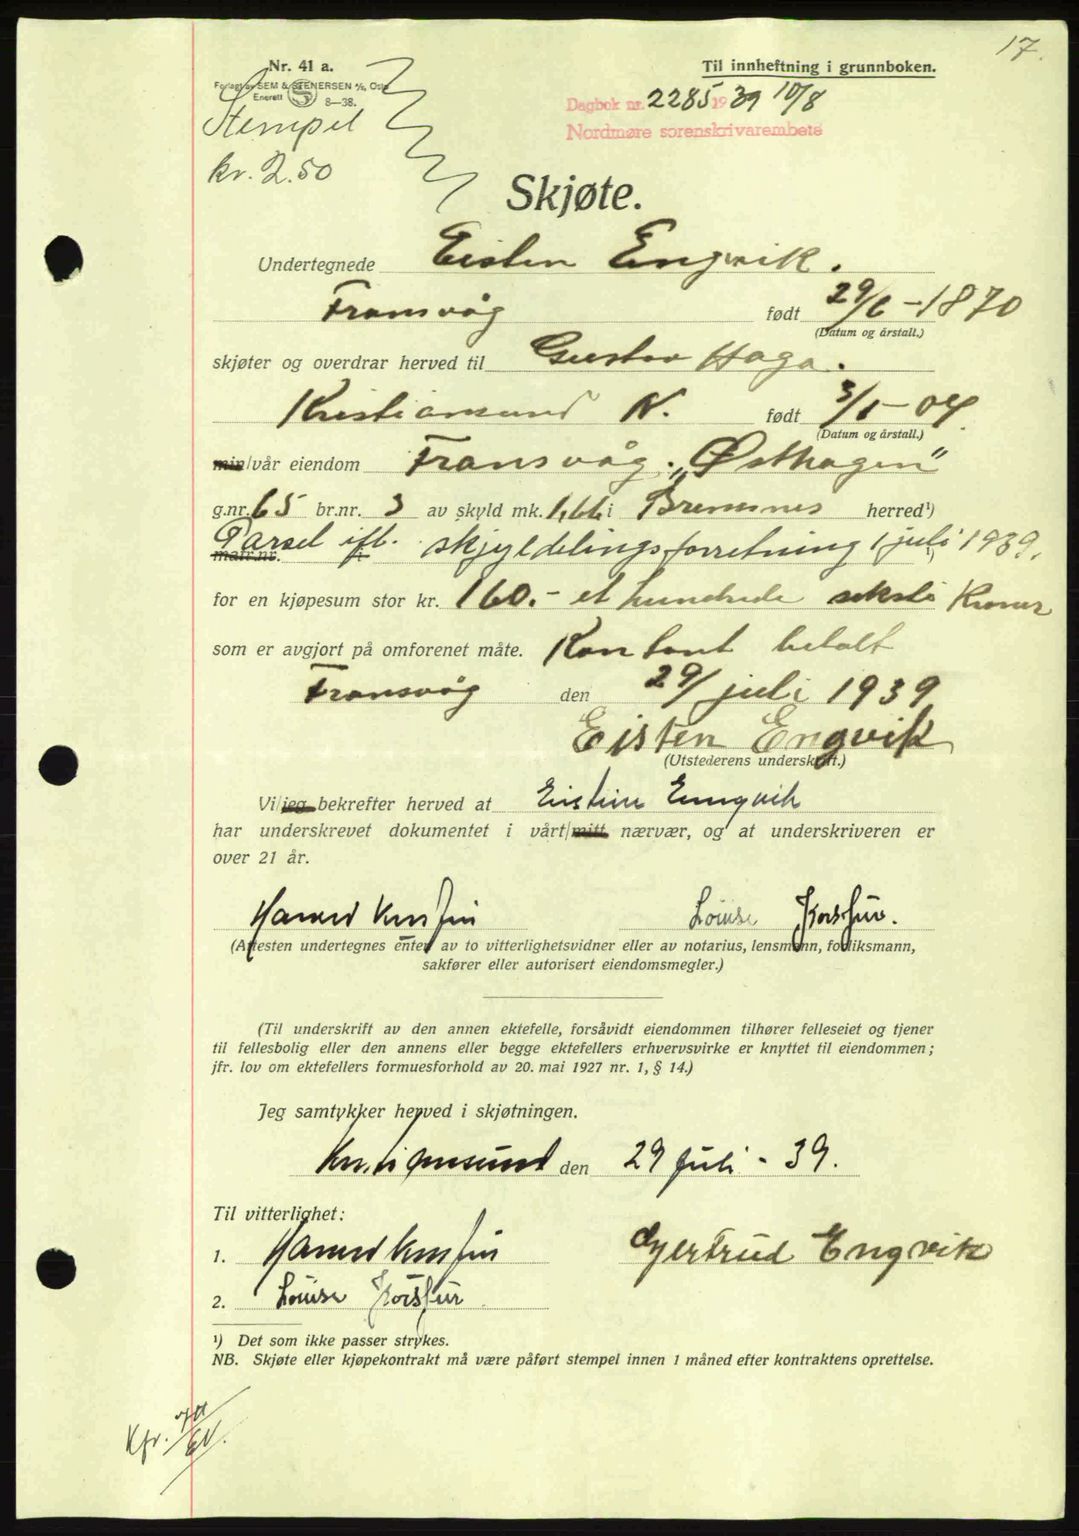 17.
Nr. 41 a.
Forlagt av SEM & STENERSEN A/S, Oslo
Enerett S 8—38.
Til innheftning i grunnboken.
Stempel
kr. 2.50
Dagbok nr. 2285 1939 10/8
Nordmøre sorenskrivarembete
Skjøte.
Undertegnede Eisten Engvik.
Fransvåg født 29/6-1870
(Datum og årstall.)
skjøter og overdrar herved til Gustav Haga.
Kristiansund N. født 3/1-04.
(Datum og årstall.)
min/vår eiendom Fransvåg. „Østhagen"
g.nr. 65 br.nr. 3 av skyld mk. 1,66 i Bremsnes herred¹)
matr.nr. Parsel ifl. skjyldelingsforretning 1 juli 1939.
for en kjøpesum stor kr. 160.- et hundrede seksti Kroner
som er avgjort på omforenet måte. Kontant betalt
Fransvåg den 29/juli 1939
Eisten Engvik
(Utstederens underskrift.)
Vi/jeg bekrefter herved at Eistine Enngvik
har underskrevet dokumentet i vårt/mitt nærvær, og at underskriveren er
over 21 år.
Louise Korsfur.
(Attesten undertegnes enten av to vitterlighetsvidner eller av notarius, lensmann, forliksmann,
sakfører eller autorisert eiendomsmegler.)
(Til underskrift av den annen ektefelle, forsåvidt eiendommen tilhører felleseiet og tjener
til fellesbolig eller den annens eller begge ektefellers erhvervsvirke er knyttet til eiendommen;
jfr. lov om ektefellers formuesforhold av 20. mai 1927 nr. 1, § 14.)
Jeg samtykker herved i skjøtningen.
Kristiansund den 29 juli - 39.
Til vitterlighet:
1.
Gjertrud Engvik
2. Louise Korsfur
¹) Det som ikke passer strykes.
NB. Skjøte eller kjøpekontrakt må være påført stempel innen 1 måned efter kontraktens oprettelse.
Kfr.